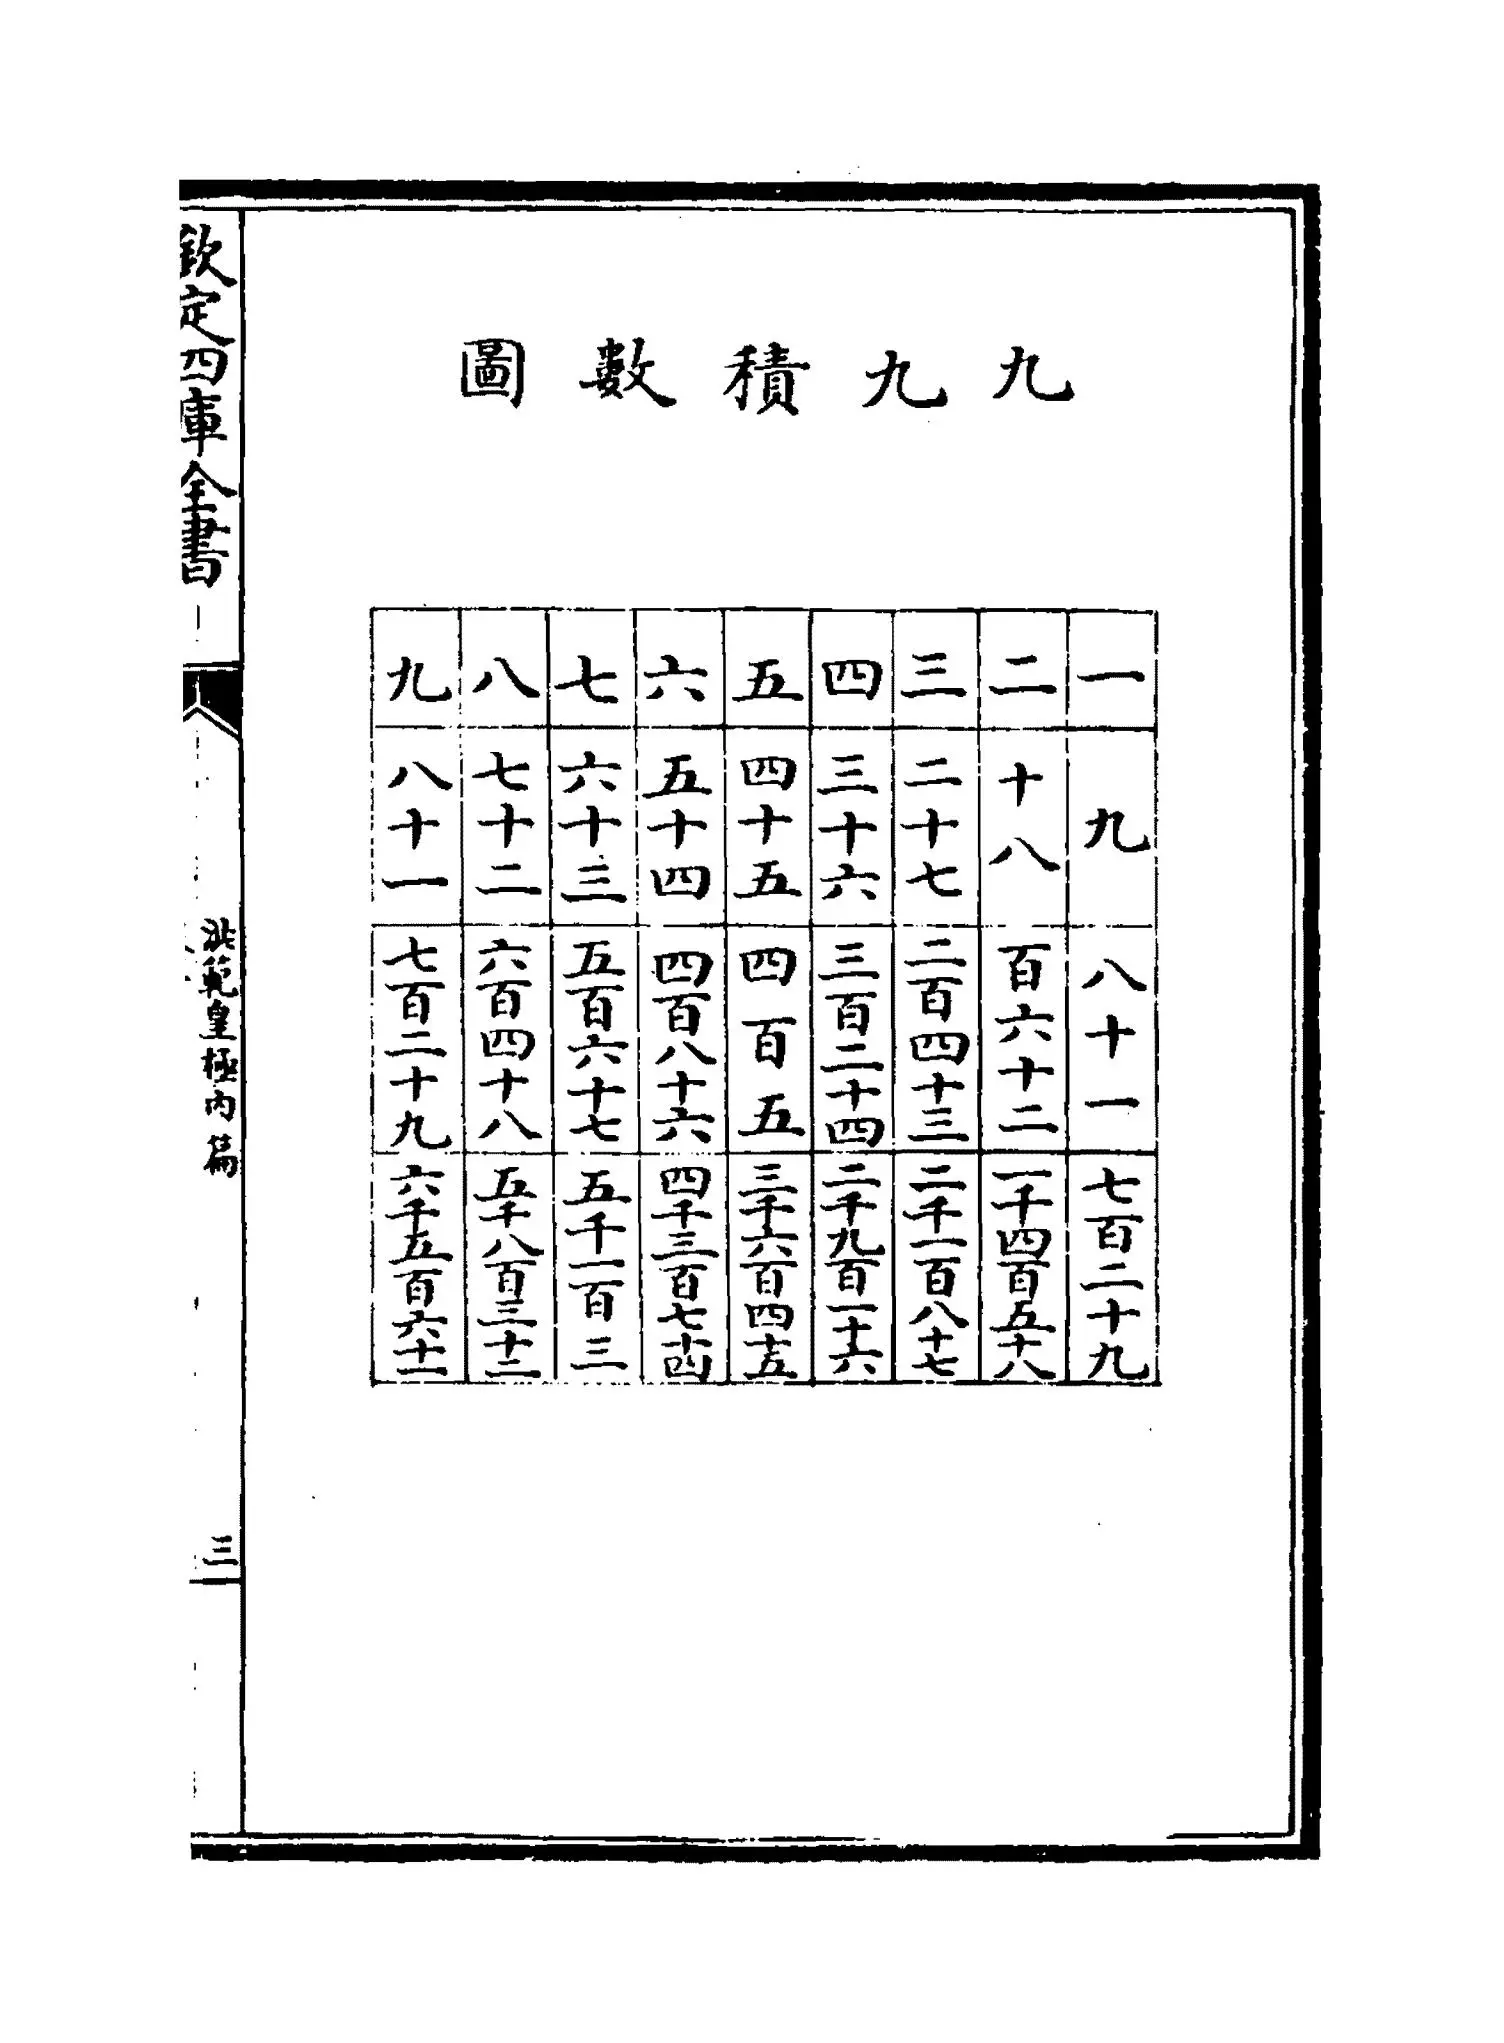 九九積數圖
一 九 八十一 七百二十九
二 十八 百六十二 一千四百五十八
三 二十七 二百四十三 二千一百八十七
四 三十六 三百二十四 二千九百一十六
五 四十五 四百五 三千六百四十五
六 五十四 四百八十六 四千三百七十四
七 六十三 五百六十七 五千一百三
八 七十二 六百四十八 五千八百三十二
九 八十一 七百二十九 六千五百六十一
欽定四庫全書
洪範皇極內篇
三